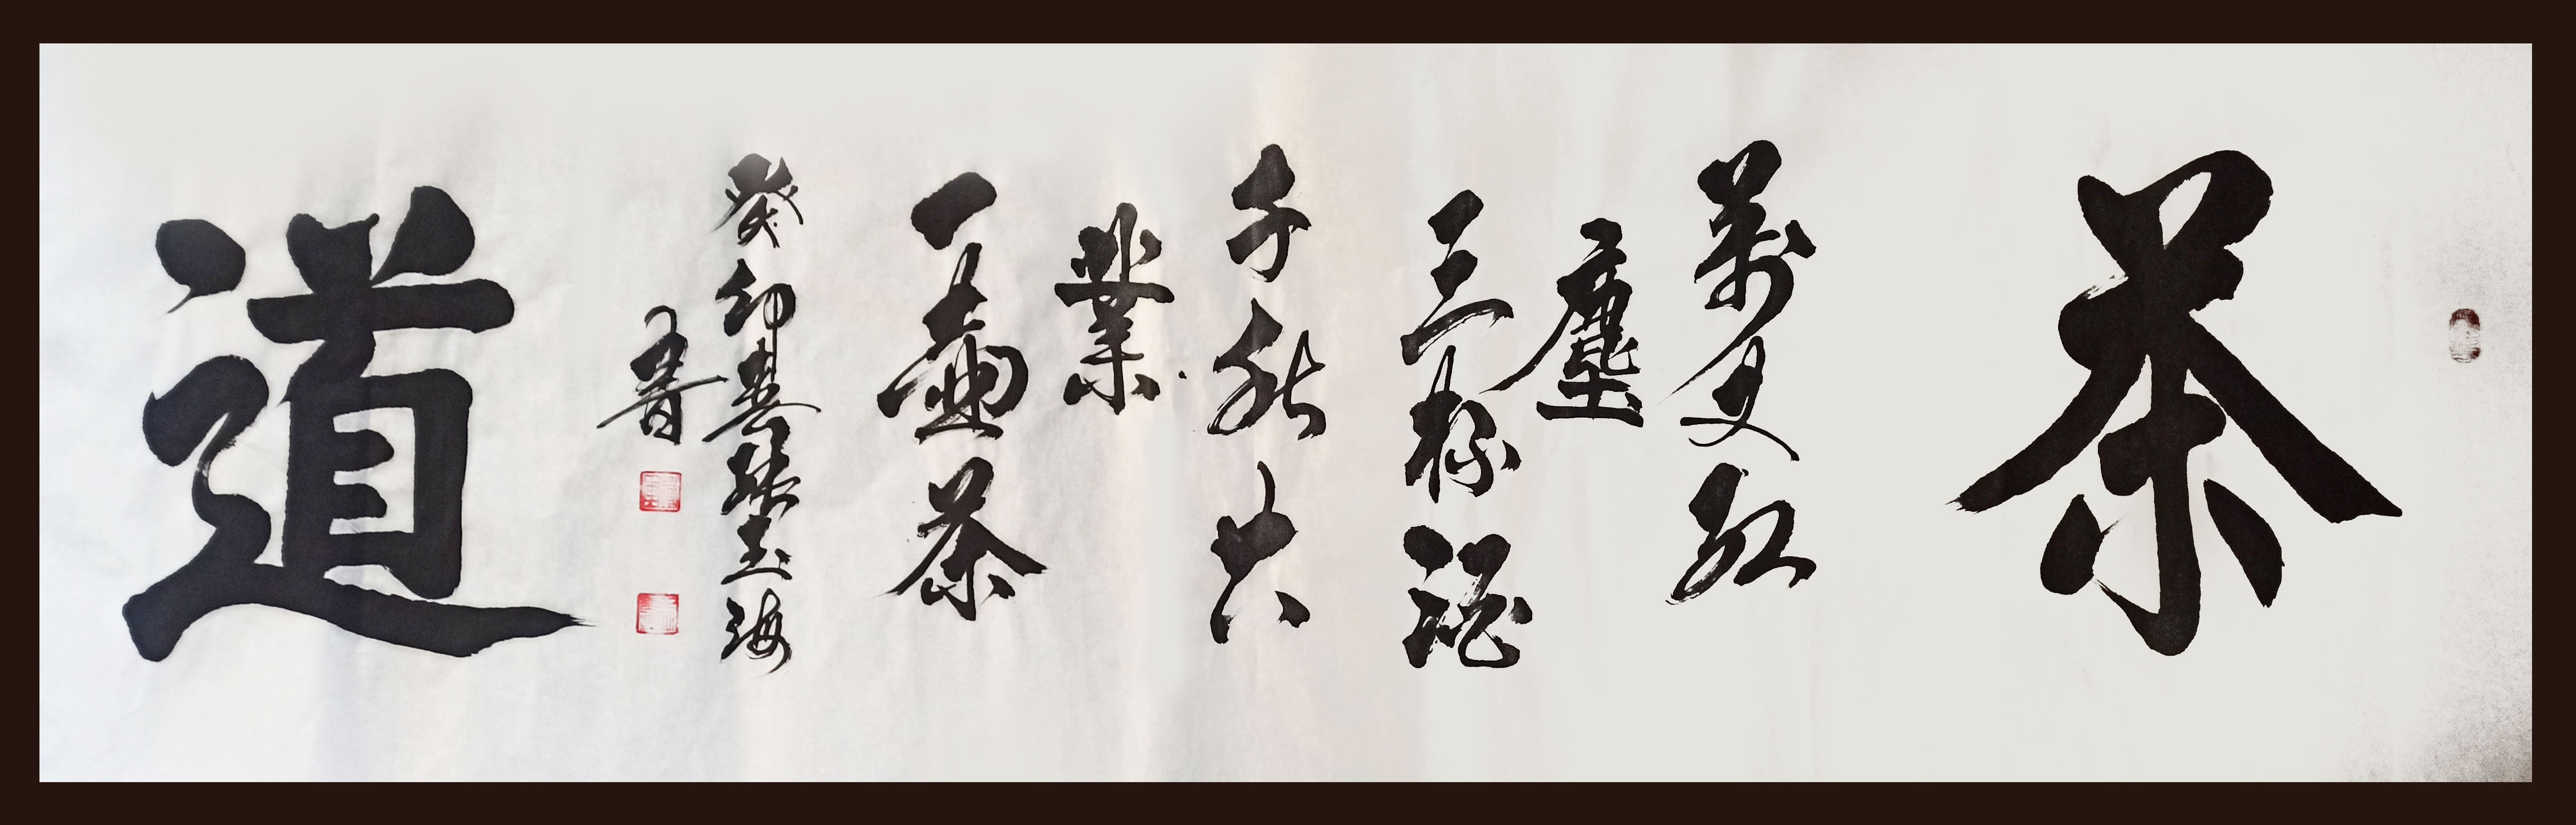 茶
萬丈紅
塵
三杯酒
千秋大
業
一壺茶
癸卯春張玉海
書
道